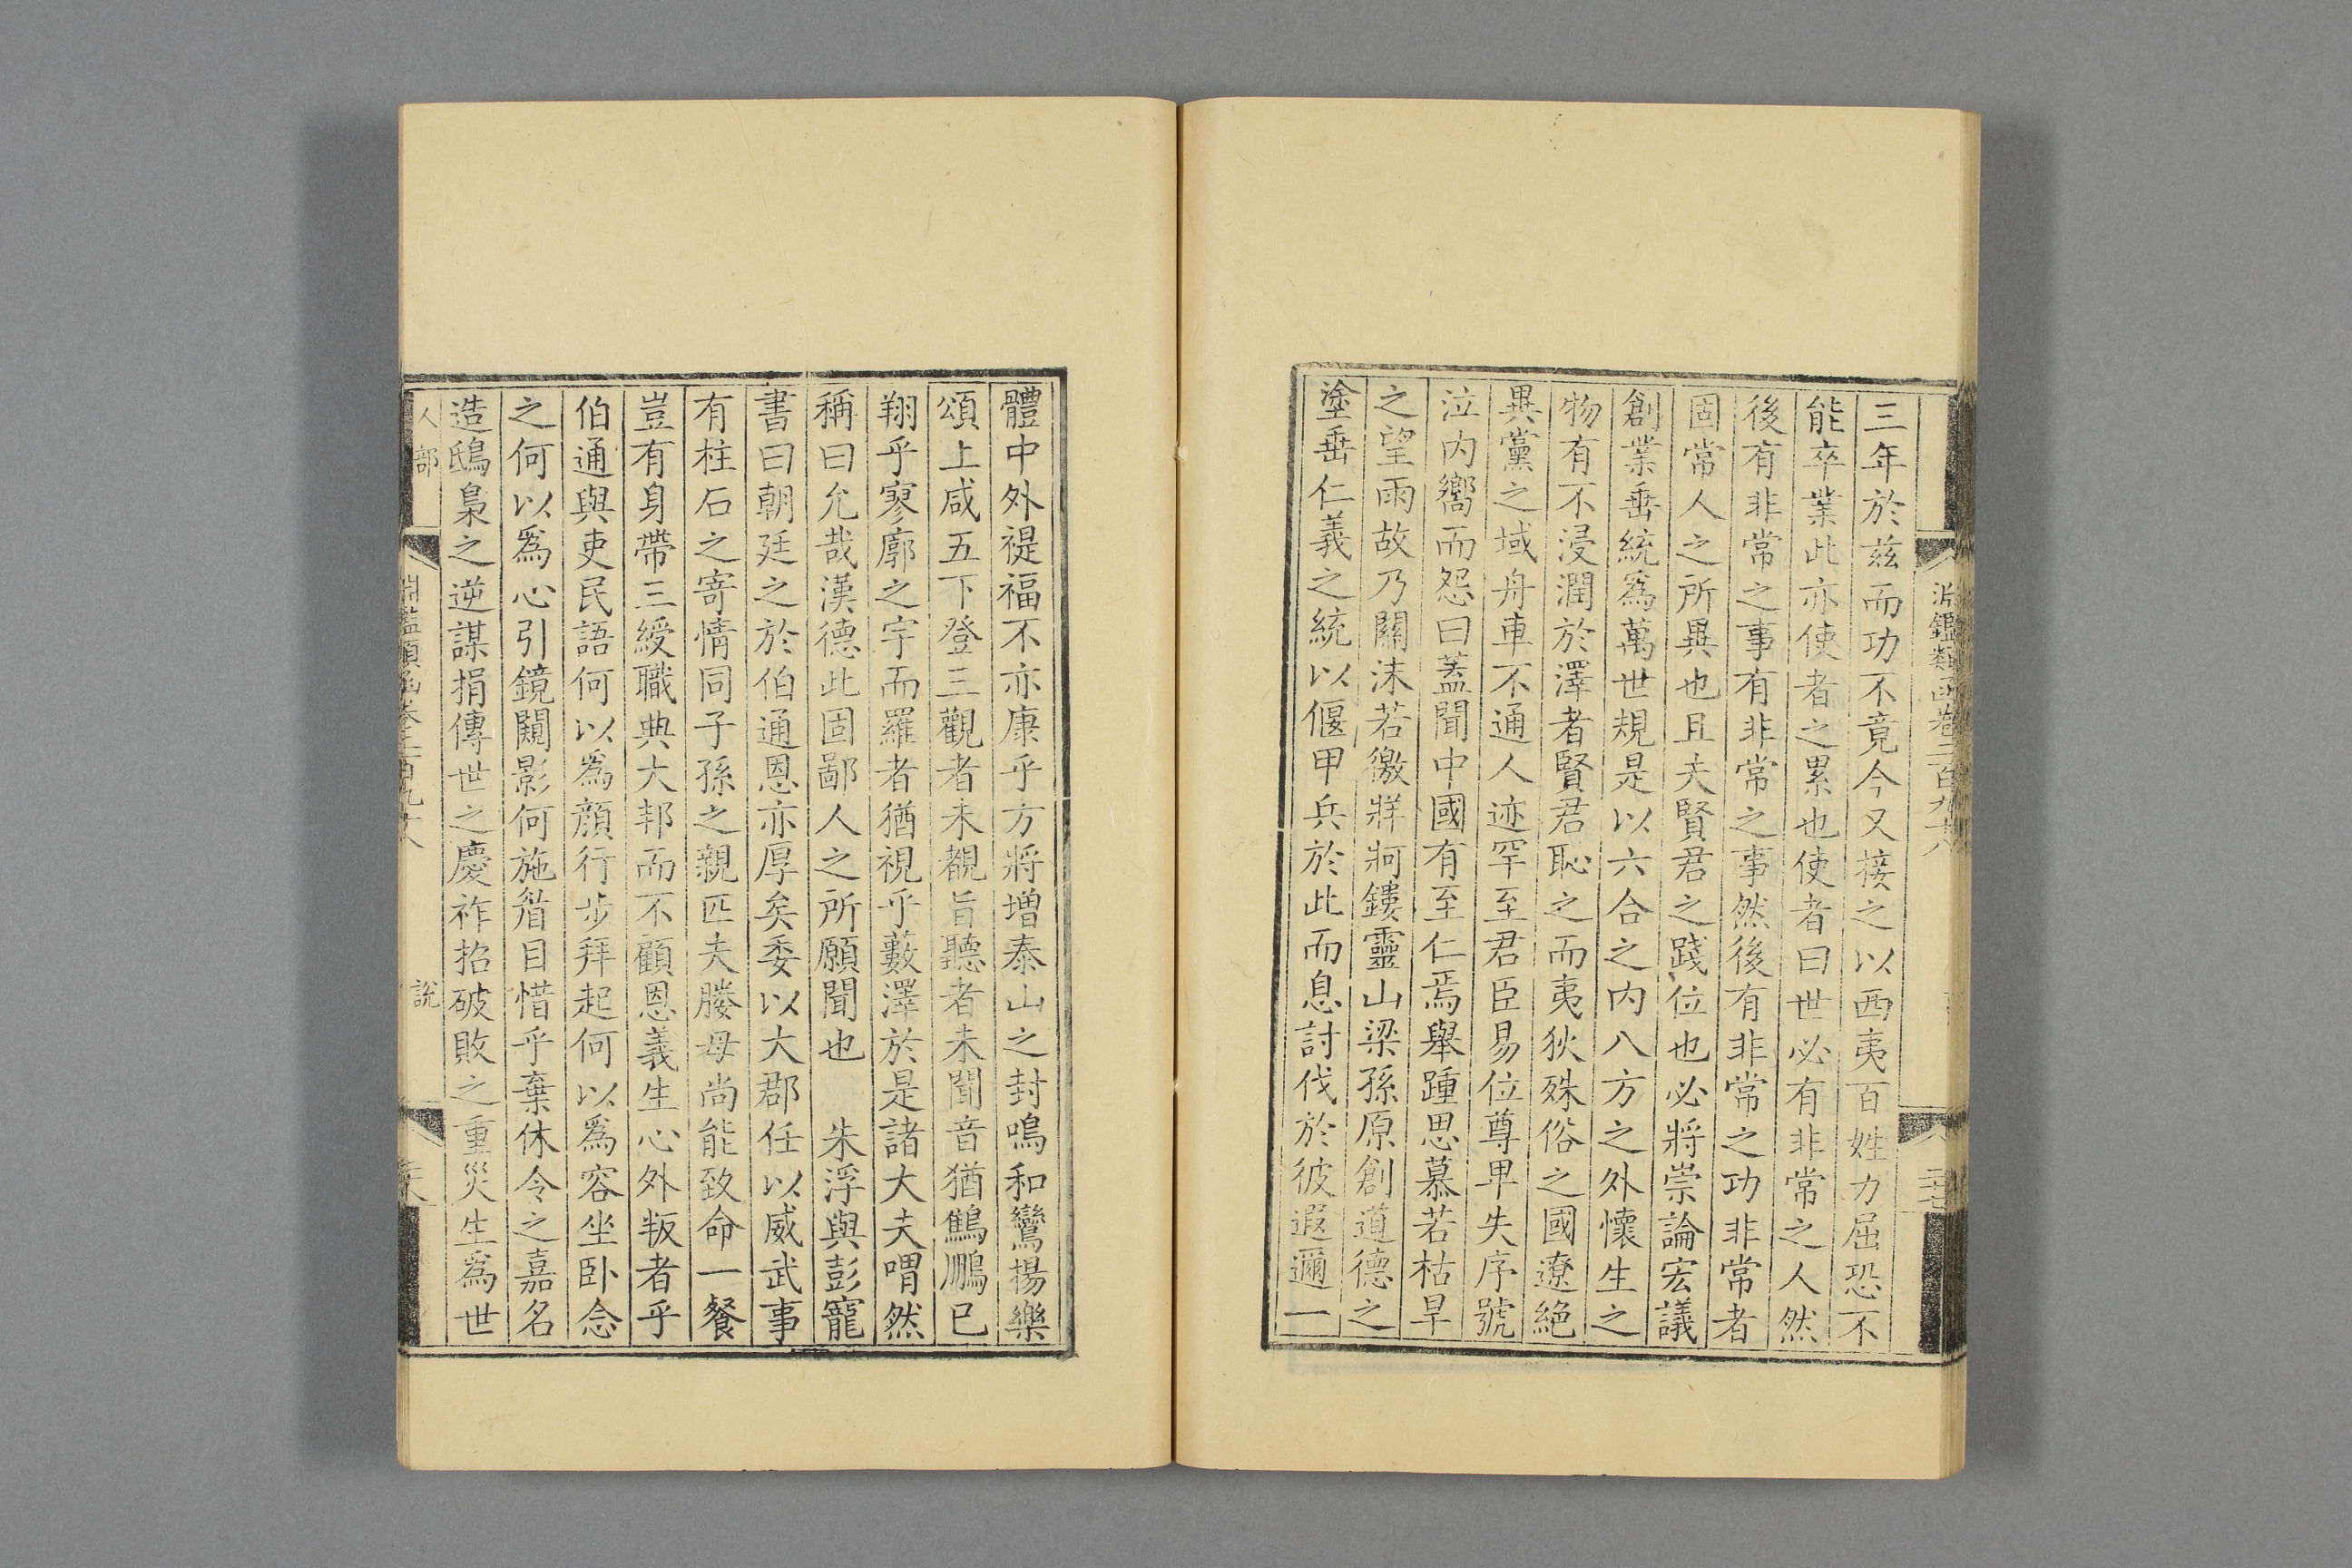 淵鑑類函卷二百九十八
三年於茲而功不竟今又接之以西夷百姓力屈恐不
能卒業此亦使者之累也使者曰世必有非常之人然
後有非常之事有非常之事然後有非常之功非常者
固常人之所異也且夫賢君之踐位也必將崇論宏議
創業垂統爲萬世規是以六合之內八方之外懷生之
物有不浸潤於澤者賢君恥之而夷狄殊俗之國遼絕
異黨之域舟車不通人迹罕至君臣易位尊卑失序號
泣內嚮而怨曰蓋聞中國有至仁焉舉踵思慕若枯旱
之望雨故乃關沬若徼牂牁鏤靈山梁孫原創道德之
塗垂仁義之統以偃甲兵於此而息討伐於彼遐邇一
體中外禔福不亦康乎方將增泰山之封鳴和鸞揚樂
頌上咸五下登三觀者未覩旨聽者未聞音猶鷦鵬已
翔乎寥廓之宇而羅者猶視乎藪澤於是諸大夫喟然
稱曰允哉漢德此固鄙人之所願聞也　朱浮與彭寵
書曰朝廷之於伯通恩亦厚矣委以大郡任以威武事
有柱石之寄情同子孫之親匹夫媵母尚能致命一餐
豈有身帶三綬職典大邦而不顧恩義生心外叛者乎
伯通與吏民語何以爲顔行步拜起何以爲容坐臥念
之何以爲心引鏡闚影何施眉目惜乎棄休令之嘉名
造鴟梟之逆謀捐傳世之慶祚招破敗之重災生爲世
人部
淵鑑類函卷二百九十八
說